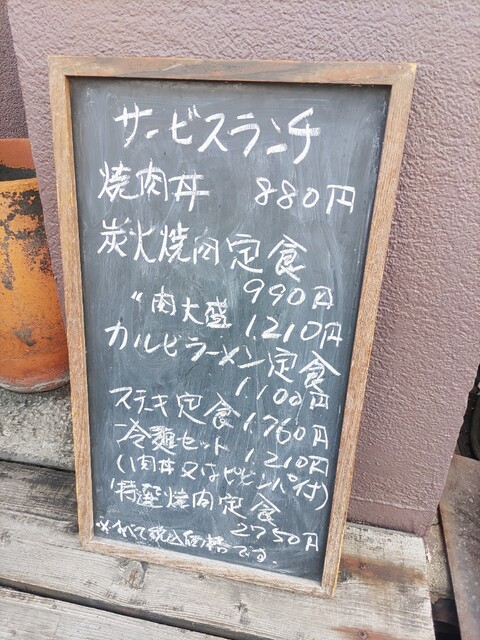 サービスランチ
焼肉丼 880円
炭火焼肉定食
990円
〃肉大盛 1.210円
カルビラーメン定食
1.100円
ステーキ定食 1.760円
冷麺セット 1.210円
(肉丼又はビビンバ付)
特選焼肉定食
2750円
※すべて税込価格です。